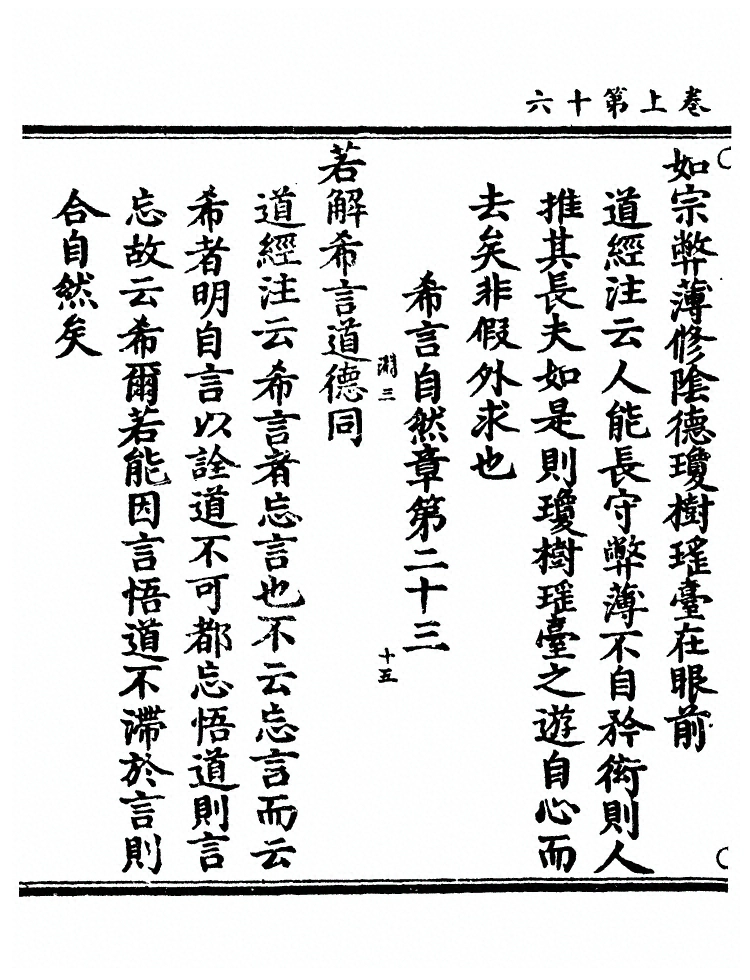 卷上第十六
如宗弊薄修陰德瓊樹瑤臺在眼前
道經注云人能長守弊薄不自矜衒則人
推其長夫如是則瓊樹瑤臺之遊自心而
去矣非假外求也
希言自然章第二十三
渊三
十五
若解希言道德同
道經注云希言者忘言也不云忘言而云
希者明自言以詮道不可都忘悟道則言
忘故云希爾若能因言悟道不滯於言則
合自然矣